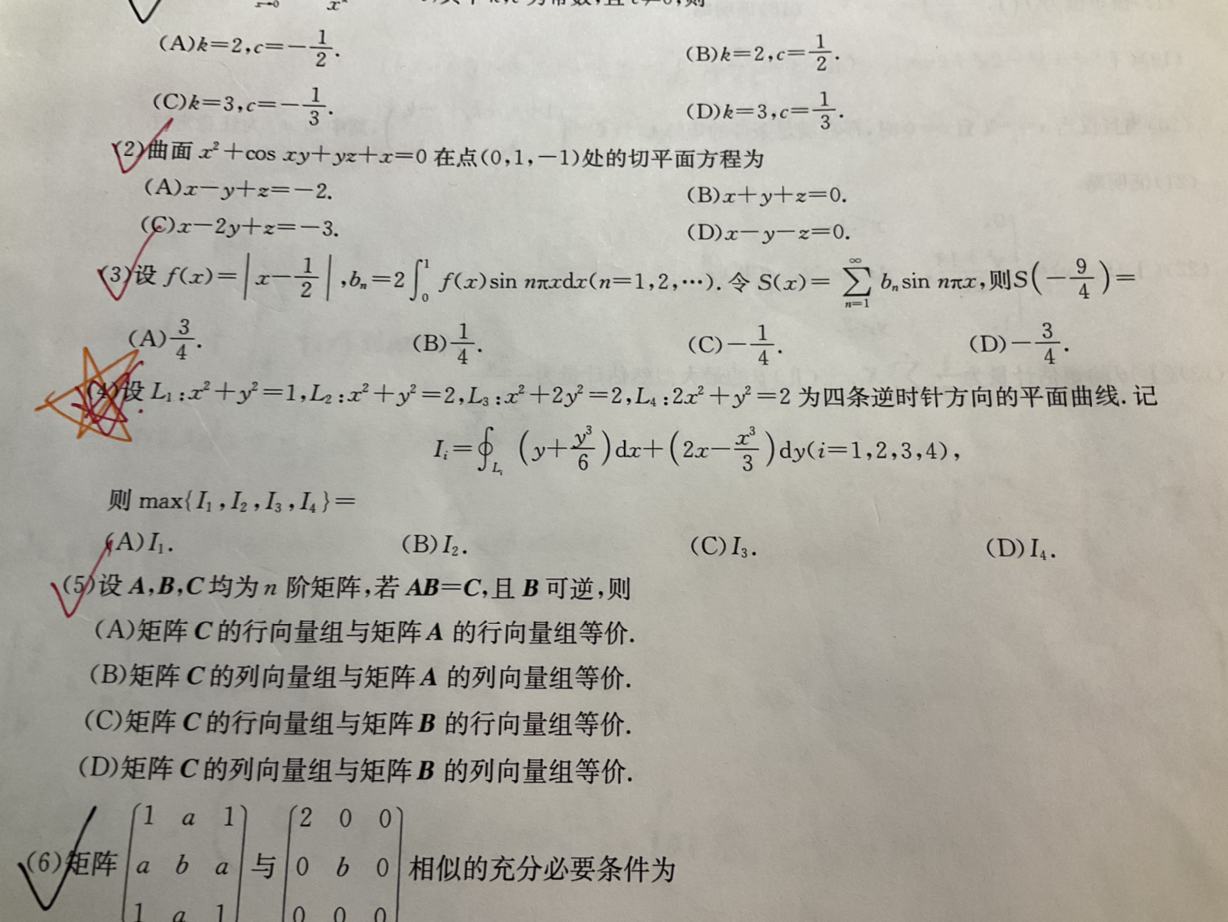 x→0 x^k
(A)k=2,c=-1/2. (B)k=2,c=1/2.
(C)k=3,c=-1/3. (D)k=3,c=1/3.
(2)曲面 x²+cos xy+yz+x=0 在点(0,1,-1)处的切平面方程为
(A)x-y+z=-2. (B)x+y+z=0.
(C)x-2y+z=-3. (D)x-y-z=0.
(3)设 f(x)=|x-1/2|,bₙ=2∫₀¹ f(x)sin nπxdx(n=1,2,…). 令 S(x)=∑_{n=1}^{∞} bₙsin nπx,则S(-9/4)=
(A)3/4. (B)1/4. (C)-1/4. (D)-3/4.
(4)设 L₁:x²+y²=1,L₂:x²+y²=2,L₃:x²+2y²=2,L₄:2x²+y²=2 为四条逆时针方向的平面曲线. 记
Iᵢ=∮_{Lᵢ}(y+y³/6)dx+(2x-x³/3)dy(i=1,2,3,4),
则 max{I₁,I₂,I₃,I₄}=
(A)I₁. (B)I₂. (C)I₃. (D)I₄.
(5)设 A,B,C 均为 n 阶矩阵,若 AB=C,且 B 可逆,则
(A)矩阵 C 的行向量组与矩阵 A 的行向量组等价.
(B)矩阵 C 的列向量组与矩阵 A 的列向量组等价.
(C)矩阵 C 的行向量组与矩阵 B 的行向量组等价.
(D)矩阵 C 的列向量组与矩阵 B 的列向量组等价.
1 a 1 2 0 0
(6)矩阵 a b a 与 0 b 0 相似的充分必要条件为
1 a 1 0 0 0